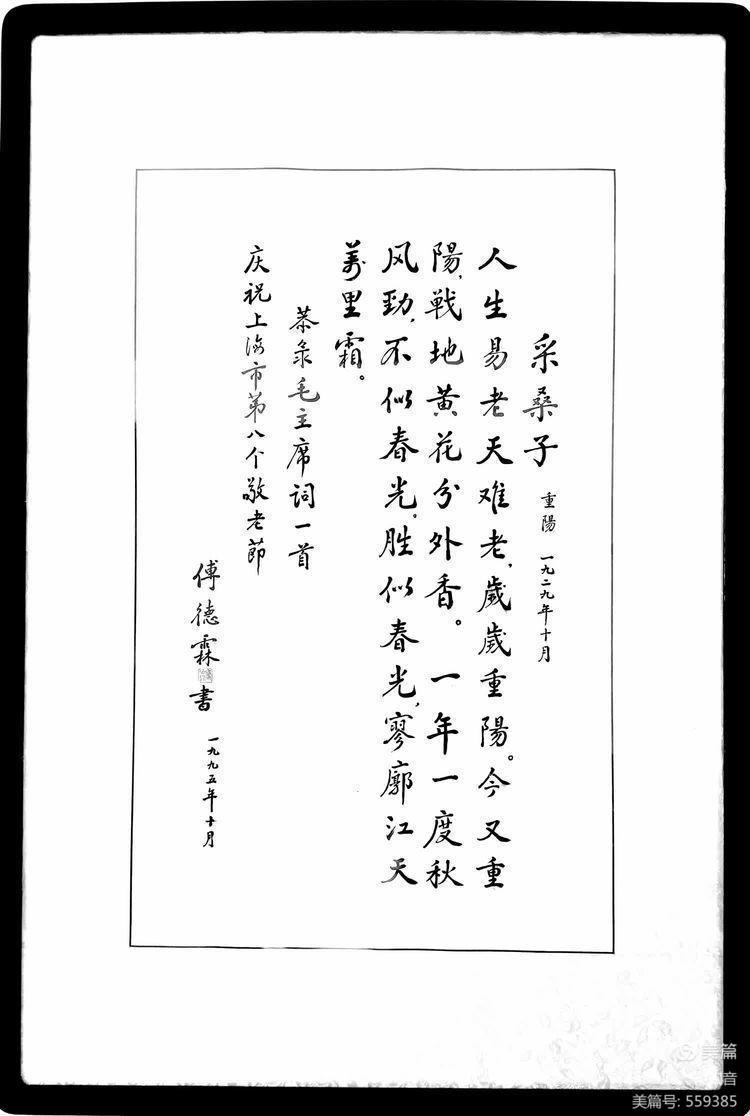 采桑子 重陽 一九二九年十月
人生易老天难老,歲歲重陽。今又重
陽,戦地黄花分外香。一年一度秋
风勁,不似春光,胜似春光,寥廓江天
萬里霜。
恭录毛主席词一首
庆祝上海市第八个敬老節
傅德霖書 一九九五年十月
美篇
音
美篇号: 559385